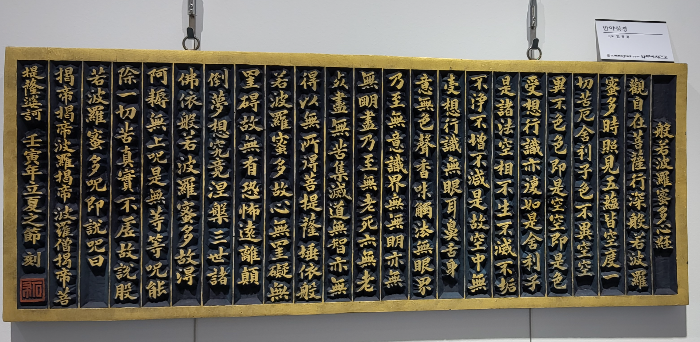 般若波羅蜜多心經
觀自在菩薩行深般若波羅
蜜多時照見五蘊皆空度一
切苦厄舍利子色不異空空
異不色色即是空空即是色
受想行識亦復如是舍利子
是諸法空相不生不滅不垢
不淨不增不減是故空中無
受想行識無眼耳鼻舌身
意無色聲香味觸法無眼界
乃至無意識界無無明亦無
無明盡乃至無老死亦無老
死盡無苦集滅道無智亦無
得以無所得菩提薩埵依般
若波羅蜜多故心無罣礙無
罣礙故無有恐怖遠離顛
倒夢想究竟涅槃三世諸
佛依般若波羅蜜多故得
阿耨無上呪是無等等呪能
除一切苦真實不虛故說般
若波羅蜜多呪即說呪曰
揭帝揭帝波羅揭帝波羅僧揭帝菩
提薩婆訶 壬寅年立夏之節 刻
반야심경